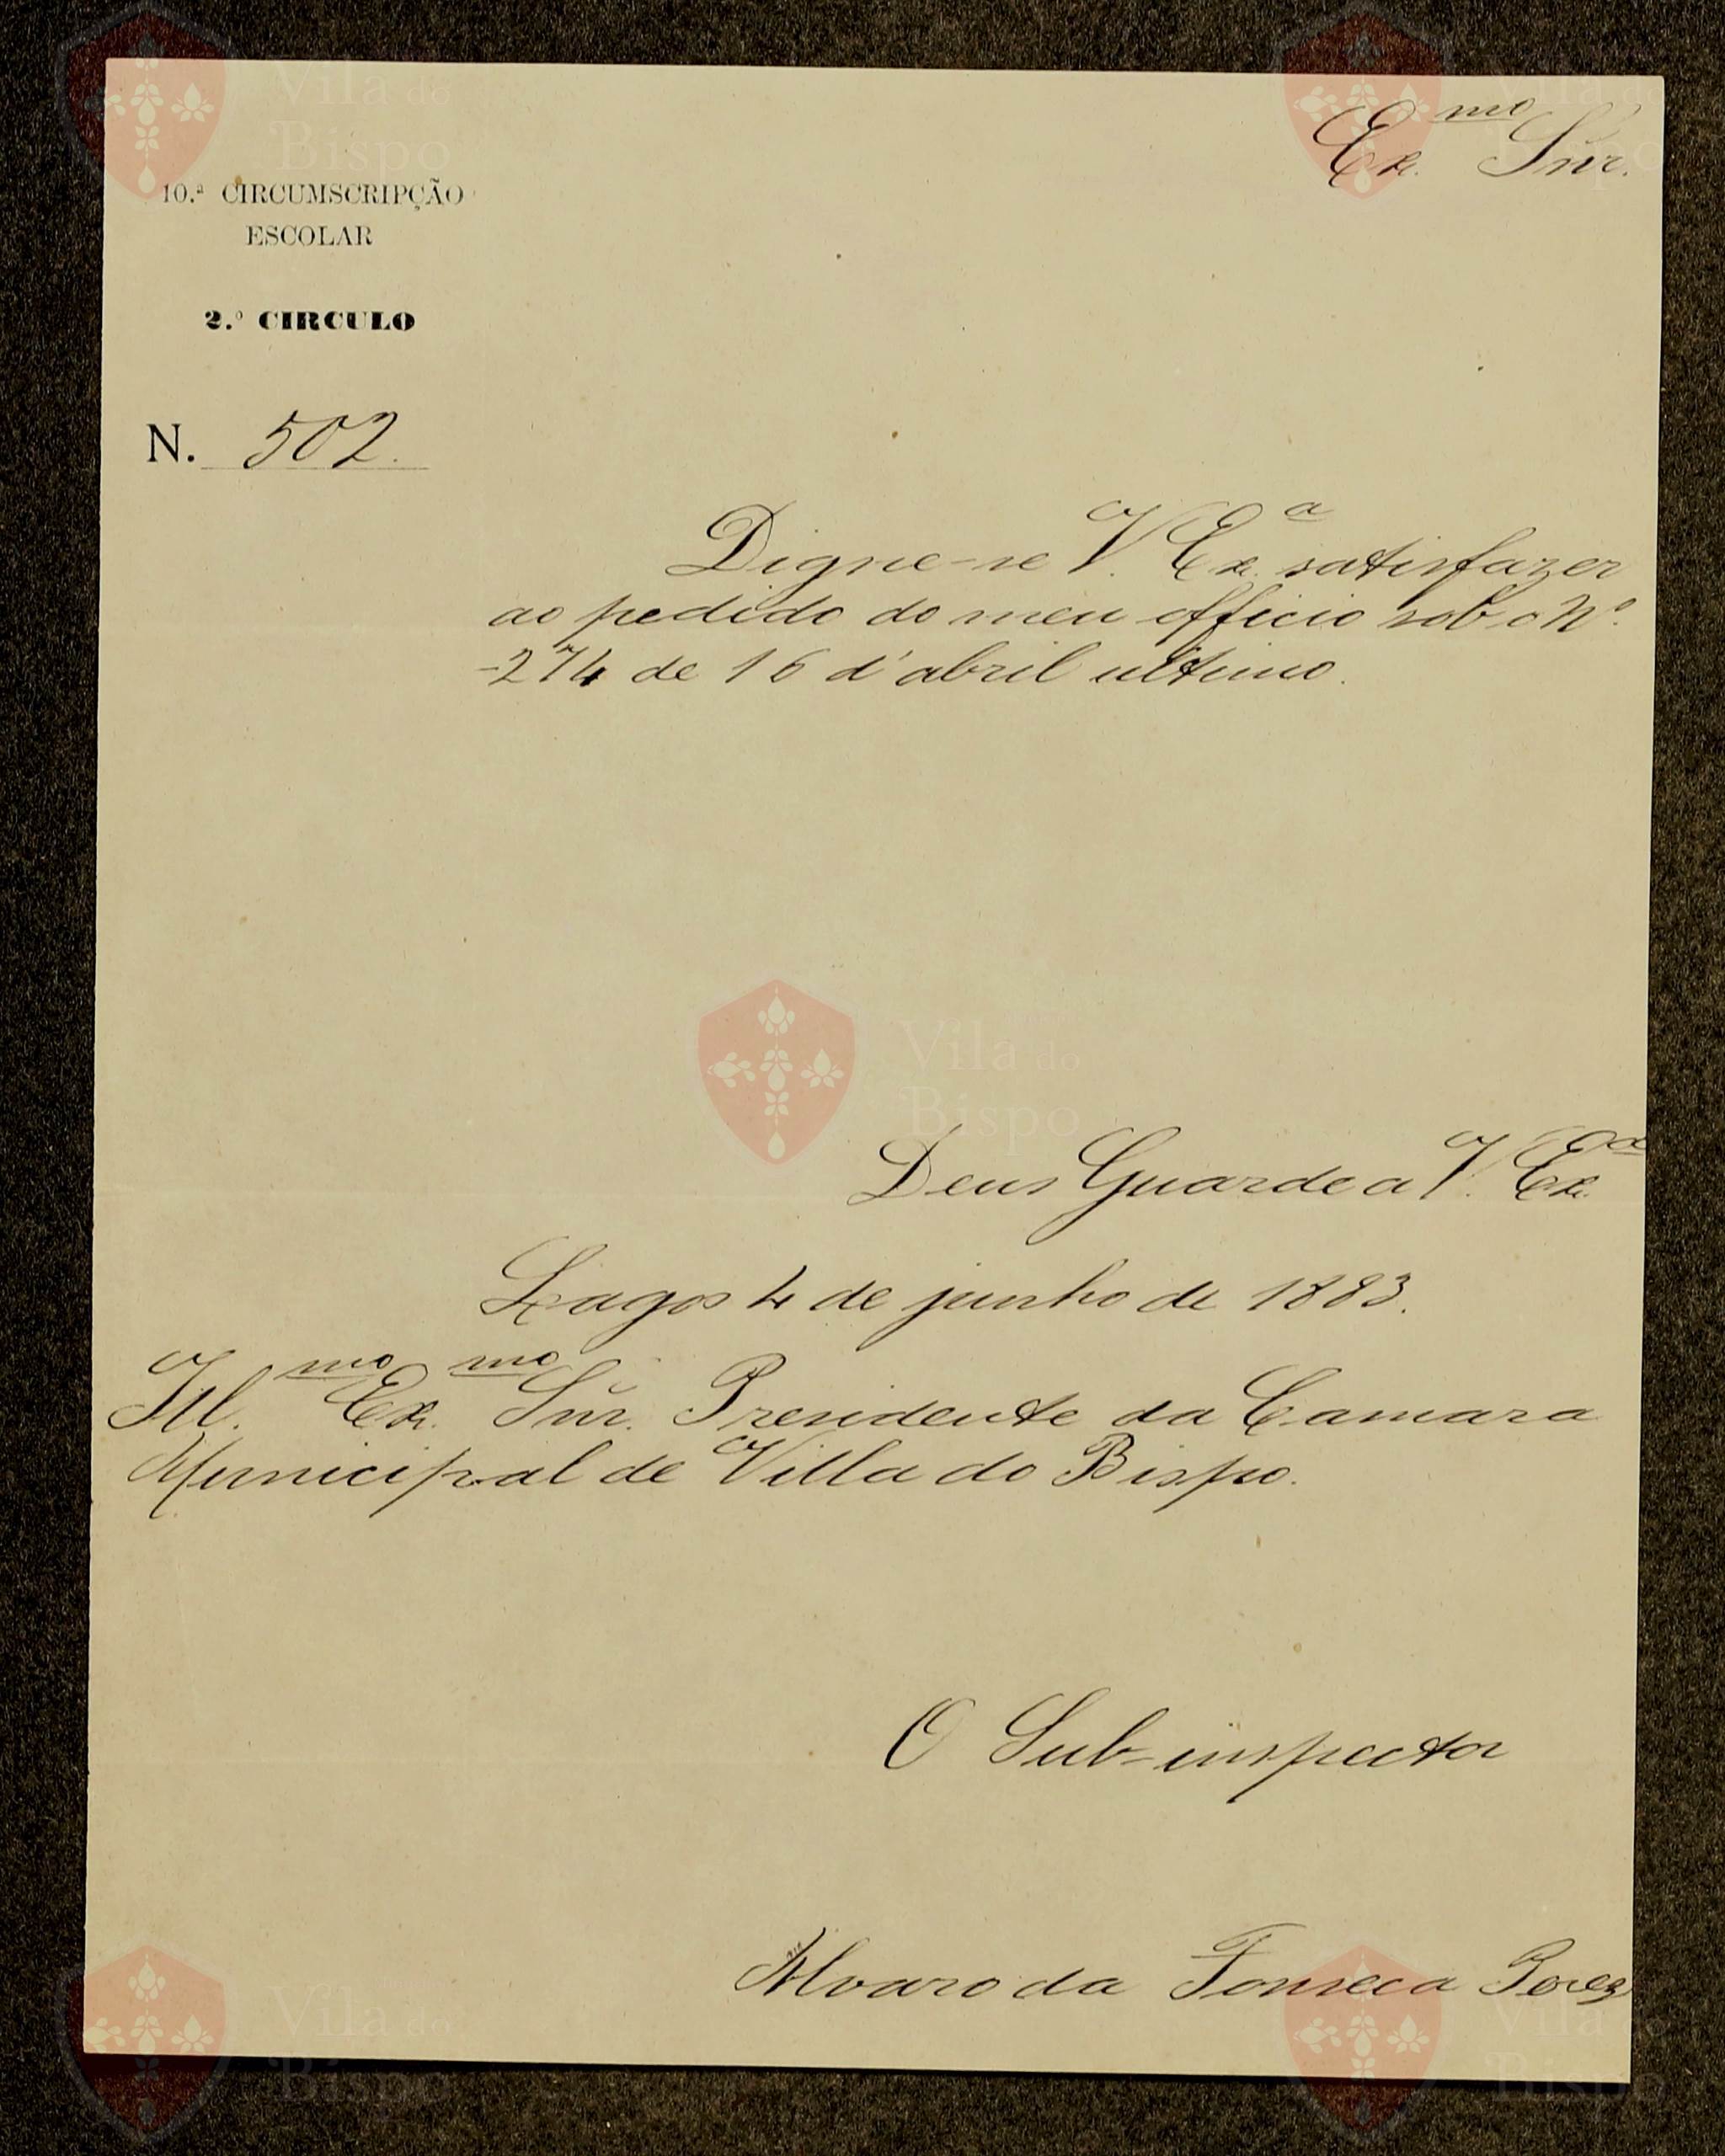 Ex.mo Snr.
10.ª CIRCUMSCRIPÇÃO
ESCOLAR
2.º CIRCULO
N. 502.
Digne-se V. Ex.a satisfazer
ao pedido do meu officio sob o Nº.
274 de 16 d'abril ultimo.
Deus Guarde a V. Ex.a
Lagos 4 de junho de 1883.
Ill.mo Ex.mo Snr. Presidente da Camara
Municipal de Villa do Bispo.
O Sub-inspector
Alvaro da Fonseca
Vila do
Bispo
Vila do
Bispo
Vila do
Bispo
Vila do
Bispo
Vila do
Bispo